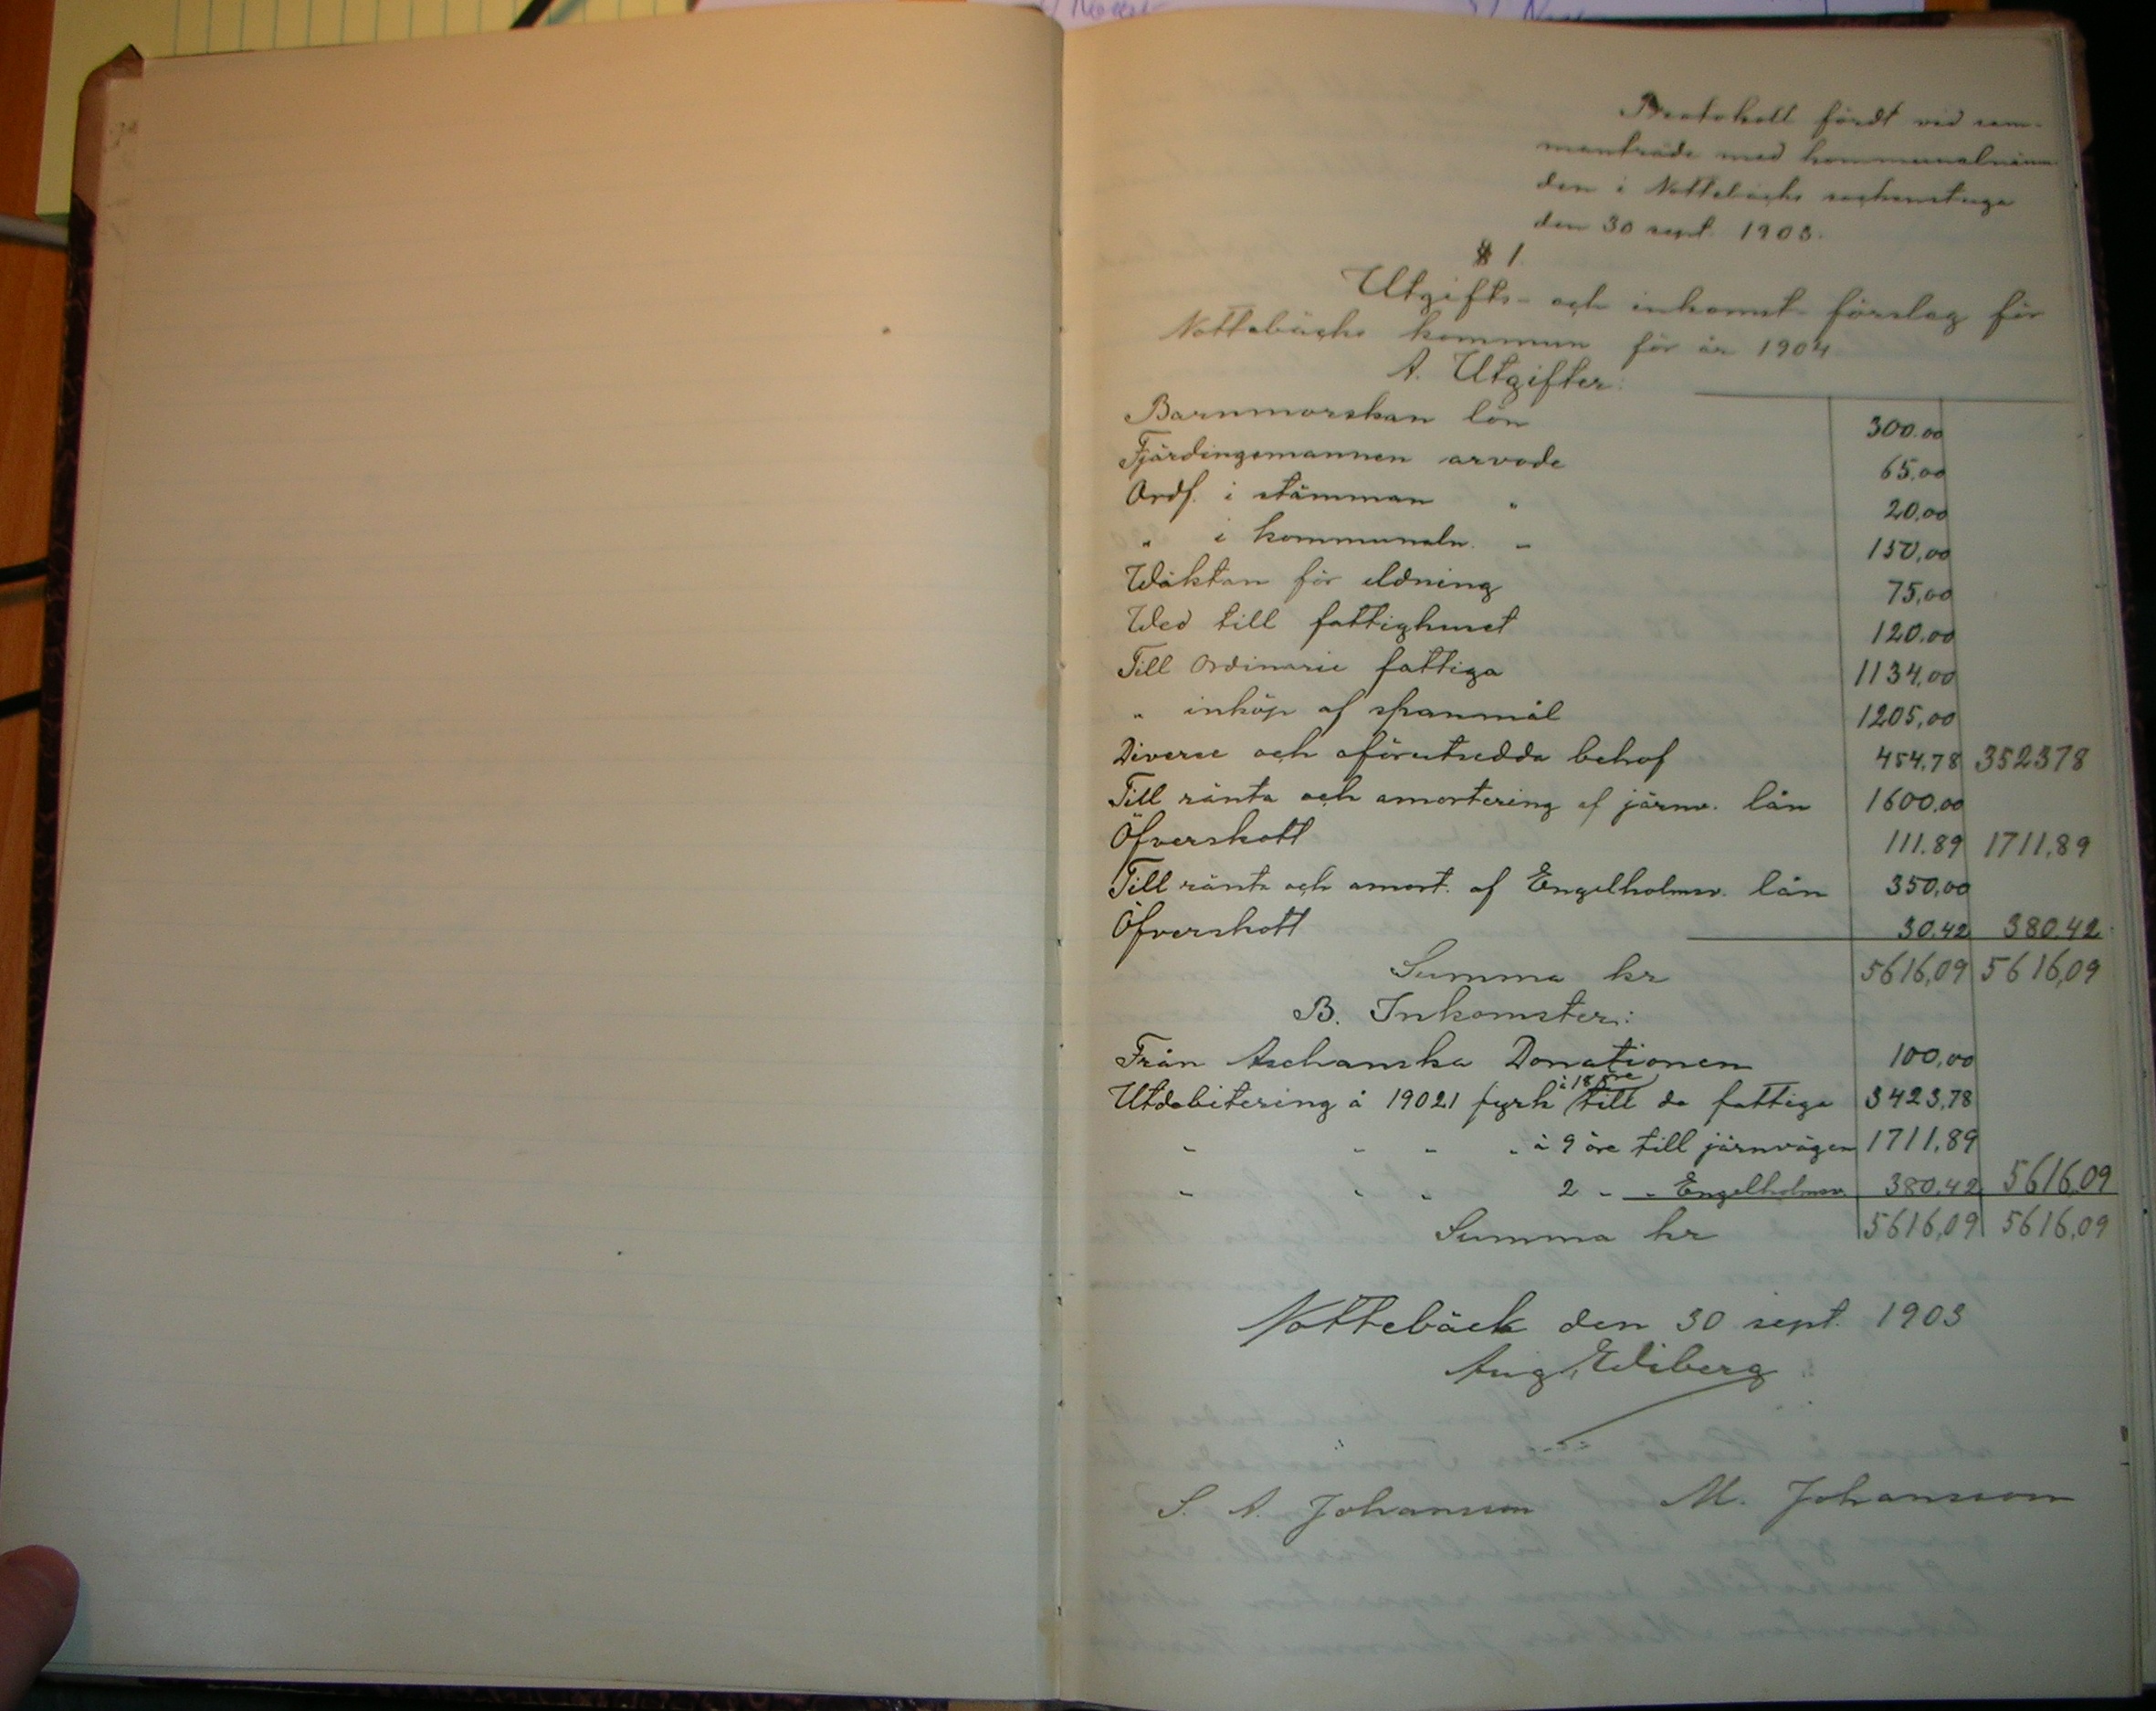 Protokoll fördt vid sam-
manträde med kommunalnämn
den i Nottebäcks sockenstuga
den 30 sept. 1903.
§ 1.
Utgifts- och inkomst förslag för
Nottebäcks kommun för år 1904
A. Utgifter:
Barnmorskan lön 300.00
Fjärdingsmannen arvode 65,00
Ordf. i stämman " 20,00
" i kommunaln. " 150,00
Wäktan för eldning 75,00
Wed till fattighuset 120.00
Till Ordinarie fattiga 1134,00
" inköp af spanmål 1205,00
Diverse och oförutsedda behof 454.78 352378
Till ränta och amortering af järnv. lån 1600,00
Öfverskott 111.89 1711,89
Till ränta och amort. af Engelholmsv. lån 350,00
Öfverskott 30.42 380.42
Summa kr 5616,09 5616,09
B. Inkomster:
Från Aschanska Donationen 100,00
à 18 öre
Utdebitering å 19021 fyrk till de fattiga 3423,78
" " " " à 9 öre till järnvägen 1711,89
" " " 2 " " Engelholmsv. 380,42 5616,09
Summa kr 5616,09 5616,09
Nottebäck den 30 sept. 1903
Aug. Wiberg
S. A. Johansson M. Johansson